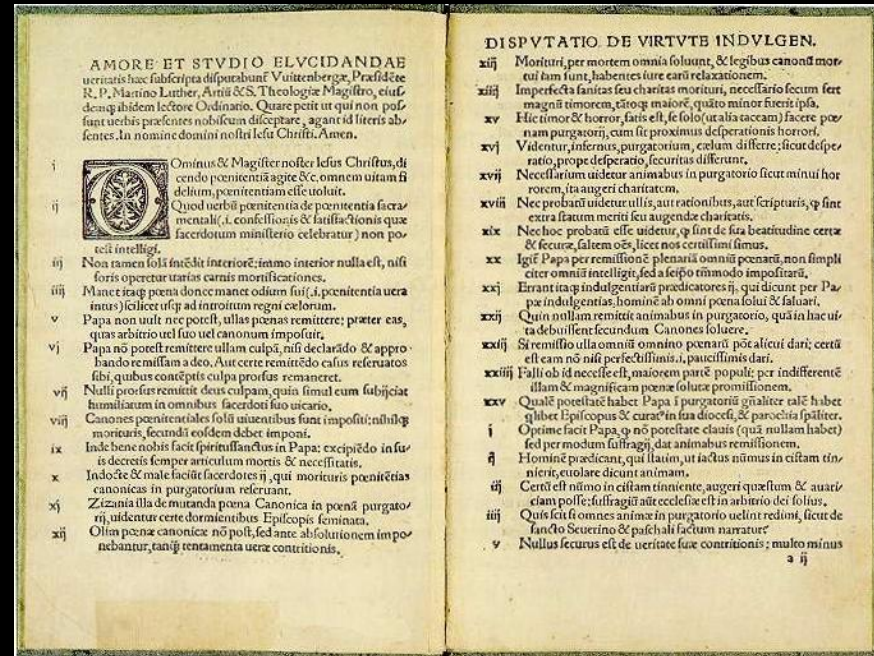 AMORE ET STVDIO ELVCIDANDAE
ueritatis hæc subscripta disputabunt̃ Vuittenbergæ, Præsidẽte
R. P. Martino Luther, Artiũ & S. Theologiæ Magistro, eius-
demq; ibidem lectore Ordinario. Quare petit ut qui non pos-
sunt uerbis præsentes nobiscum disceptare, agant id literis ab-
sentes. In nomine domini nostri Iesu Christi. Amen.
i Ominus & Magister noster Iesus Christus, di
cendo pœnitentiã agite &c. omnem uitam fi
delium, pœnitentiam esse uoluit.
ij Quod uerbũ pœnitentia de pœnitentia sacra-
mentali (.i. confessionis & satisfactionis quæ
sacerdotum ministerio celebratur) non po-
test intelligi.
iij Non tamen solã intẽdit interiorẽ: immo interior nulla est, nisi
foris operetur uarias carnis mortificationes.
iiij Manet itaq; pœna donec manet odium sui (.i. pœnitentia uera
intus) scilicet usq; ad introitum regni cælorum.
v Papa non uult nec potest, ullas pœnas remittere: præter eas,
quas arbitrio uel suo uel canonum imposuit.
vj Papa nõ potest remittere ullam culpã, nisi declarãdo & appro-
bando remissam a deo. Aut certe remittẽdo casus reseruatos
sibi, quibus contẽptis culpa prorsus remaneret.
vij Nulli prorsus remittit deus culpam, quin simul eum subijciat
humiliatum in omnibus sacerdoti suo uicario.
viij Canones pœnitentiales solũ uiuentibus sunt impositi: nihilq;
morituris, secundũ eosdem debet imponi.
ix Inde bene nobis facit spiritussanctus in Papa: excipiẽdo in su-
is decretis semper articulum mortis & necessitatis.
x Indocte & male faciũt sacerdotes ij, qui morituris pœnitẽtias
canonicas in purgatorium reseruant.
xj Zizania illa de mutanda pœna Canonica in pœnã purgato-
rij, uidentur certe dormientibus Episcopis seminata.
xij Olim pœnæ canonicæ nõ post, sed ante absolutionem impo-
nebantur, tanq̃ tentamenta ueræ contritionis.
DISPVTATIO DE VIRTVTE INDVLGEN.
xiij Morituri, per mortem omnia soluunt, & legibus canonũ mor-
tui iam sunt, habentes iure earũ relaxationem.
xiiij Imperfecta sanitas seu charitas morituri, necessario secum fert
magnũ timorem, tãtoq; maiorẽ, quãto minor fuerit ipsa.
xv Hic timor & horror, satis est, se solo (ut alia taceam) facere pœ-
nam purgatorij, cum sit proximus desperationis horrori.
xvj Videntur, infernus, purgatorium, cælum differre: sicut despe-
ratio, prope desperatio, securitas differunt.
xvij Necessarium uidetur animabus in purgatorio sicut minui hor
rorem, ita augeri charitatem.
xviij Nec probatũ uidetur ullis, aut rationibus, aut scripturis, q̃ sint
extra statum meriti seu augendæ charitatis.
xix Nec hoc probatũ esse uidetur, q̃ sint de sua beatitudine certæ
& securæ, saltem oẽs, licet nos certissimi simus.
xx Igit̃ Papa per remissionẽ plenariã omniũ pœnarũ, non simpli
citer omniũ intelligit, sed a seipso tm̃modo impositarũ.
xxj Errant itaq; indulgentiarũ prædicatores ij, qui dicunt per Pa-
pæ indulgentias, hominẽ ab omni pœna solui & saluari.
xxij Quin nullam remittit animabus in purgatorio, quã in hac ui-
ta debuissent secundum Canones soluere.
xxiij Si remissio ulla omniũ omnino pœnarũ põt alicui dari: certũ
est eam nõ nisi perfectissimis .i. paucissimis dari.
xxiiij Falli ob id necesse est, maiorem partẽ populi: per indifferentẽ
illam & magnificam pœnæ solutæ promissionem.
xxv Qualẽ potestatẽ habet Papa ĩ purgatoriũ gñaliter talẽ habet
q̃libet Episcopus & curat⁹ in sua diocesi, & parochia sp̃aliter.
j Optime facit Papa, q̃ nõ potestate clauis (quã nullam habet)
sed per modum suffragij, dat animabus remissionem.
ij Hominẽ prædicant, qui statim, ut iactus nũmus in cistam tin-
nierit, euolare dicunt animam.
iij Certũ est nũmo in cistam tinniente, augeri quæstum & auari-
ciam posse: suffragiũ aũt ecclesiæ est in arbitrio dei solius.
iiij Quis scit si omnes animæ in purgatorio uelint redimi, sicut de
sancto Seuerino & paschali factum narratur?
v Nullus securus est de ueritate suæ contritionis: multo minus
a ij